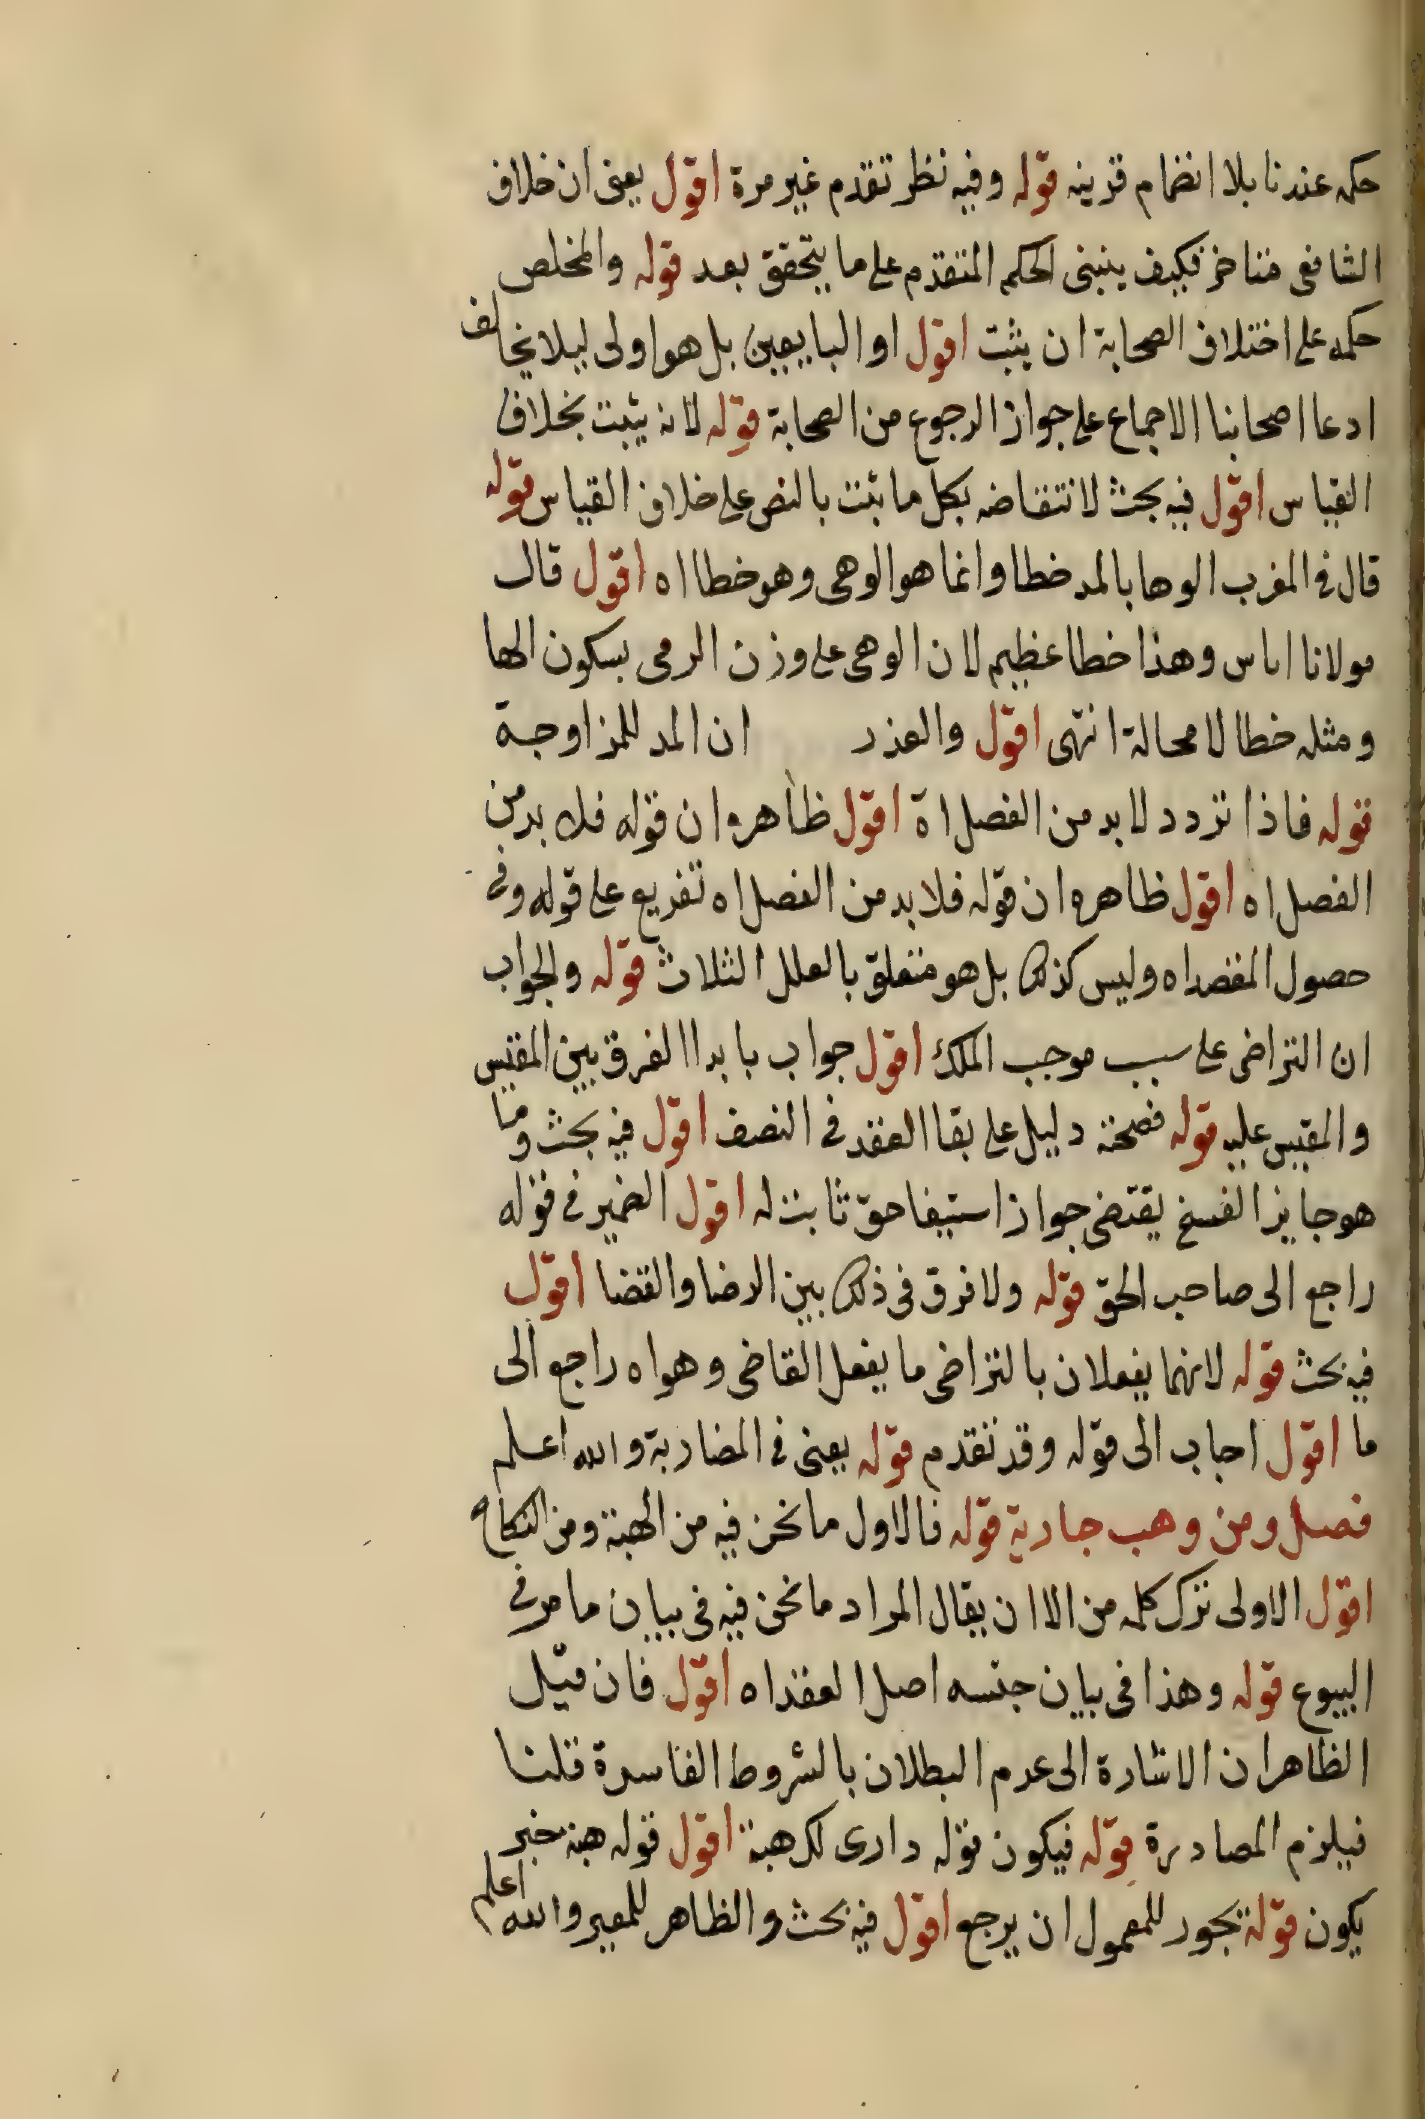 حكمه عندنا بلا انضمام قرينه قوله وفيه نظر تقدم غير مرة اقول يعنى ان خلاف
الشافعى متناخر فكيف ينبنى الحكم المتقدم على ما يتحقق بعد قوله والمخلص
حكمه على اختلاف الصحابة ان يثبت اقول او البايعين بل هو اولى ليلا يخالف
ادعا اصحابنا الاجماع على جواز الرجوع من الصحابة قوله لانه يثبت بخلاف
القياس اقول فيه بحث لانتقاضه بكل ما ثبت بالنص على خلاف القياس قوله
قال فى المغرب الوها بالمد خطا وانما هو الوهى وهو خطا اه اقول قال
مولانا اياس وهذا خطا عظيم لان الوهى على وزن الرمى بسكون الها
ومثله خطا لا محالة انتهى اقول والعذر ان المد للمزاوجة
قوله فاذا تردد لا بد من الفصل اة اقول ظاهره ان قوله فلا بد من
الفصل اه اقول ظاهره ان قوله فلا بد من الفصل اه تفريع على قوله وفى
حصول المقصد اه وليس كذلك بل هو متعلق بالعلل الثلاث قوله والجواب
ان التراضى على سبب موجب الملك اقول جواب بابدا الفرق بين المقيس
والمقيس عليه قوله فصحته دليل على بقا العقد فى النصف اقول فيه بحث وما
هو جايز الفسخ يقتضى جواز استيفا حق ثابت له اقول الضمير فى قوله
راجع الى صاحب الحق قوله ولا فرق فى ذلك بين الرضا والقضا اقول
فيه بحث قوله لانهما يفعلان بالتراضى ما يفعل القاضى وهو اه راجع الى
ما اقول اجاب الى قوله وقد تقدم قوله يعنى فى المضاربة والله اعلم
فصل ومن وهب جارية قوله فالاول ما نحن فيه من الهبة ومن النكاح
اقول الاولى ترك كلمه من الا ان يقال المراد ما نحن فيه فى بيان ما مر فى
البيوع قوله وهذا فى بيان جنسه اصل العقد اه اقول فان قيل
الظاهر ان الاشارة الى عدم البطلان بالشروط الفاسدة قلنا
فيلزم المصادرة قوله فيكون قوله دارى لك هبة اقول قوله هبة خبر
يكون قوله تجور للمعمول ان يرجع اقول فيه بحث والظاهر للمعير والله اعلم